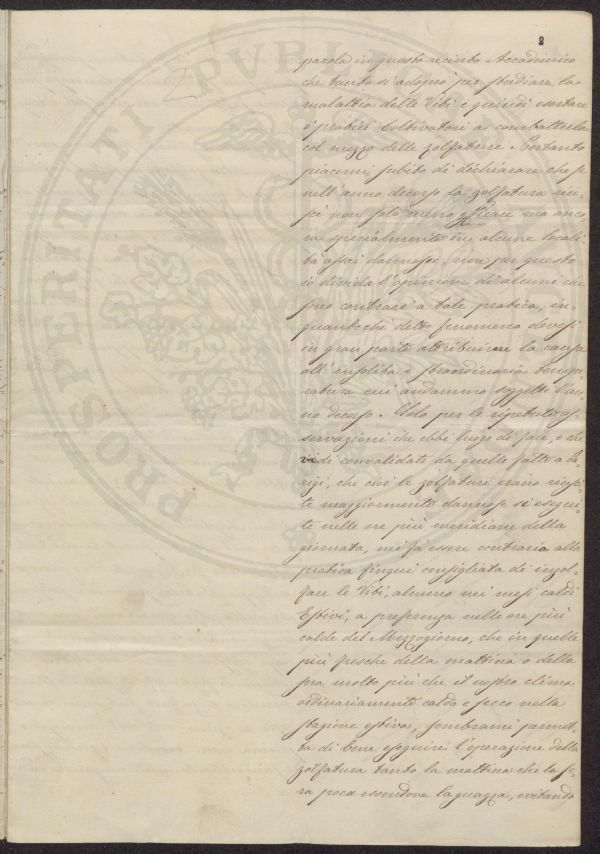 2
PROSPERITATI PUBLICAE
parola in questo recinto Accademico
che tanto si adoprò per studiare la
malattia delle Viti e quindi esortare
i pratici Coltivatori a combatterla
col mezzo delle zolfature. Pertanto
piacemi subito di dichiarare che se
nell'anno decorso la zolfatura riu-
scì non solo meno efficace ma anco-
ra specialmente in alcune locali-
tà assai dannosa, non per questo
io divido l'opinione di alcuni che
sono contrari a tale pratica, in
quantoche detto fenomeno devesi
in gran parte attribuirne la causa
all'insolita e straordinaria tempe-
ratura cui andammo soggetti l'an-
no decorso. Solo per le ripetute os-
servazioni che ebbi luogo di fare, e che
vidi convalidate da quelle fatte a Pa-
rigi, che cioè le zolfature erano riusci-
te maggiormente dannose se esegui-
te nelle ore più meridiane della
giornata, mi fà essere contrario alla
pratica finqui consigliata di inzol-
fare le Viti, almeno nei mesi caldi
Estivi, a preferenza nelle ore più
calde del Mezzogiorno, che in quelle
più fresche della mattina o della
sera molto più che il nostro clima
ordinariamente caldo e secco nella
stagione estiva, sembrami permet-
ta di bene eseguire l'operazione della
zolfatura tanto la mattina che la se-
ra poca essendone la guazza, evitando